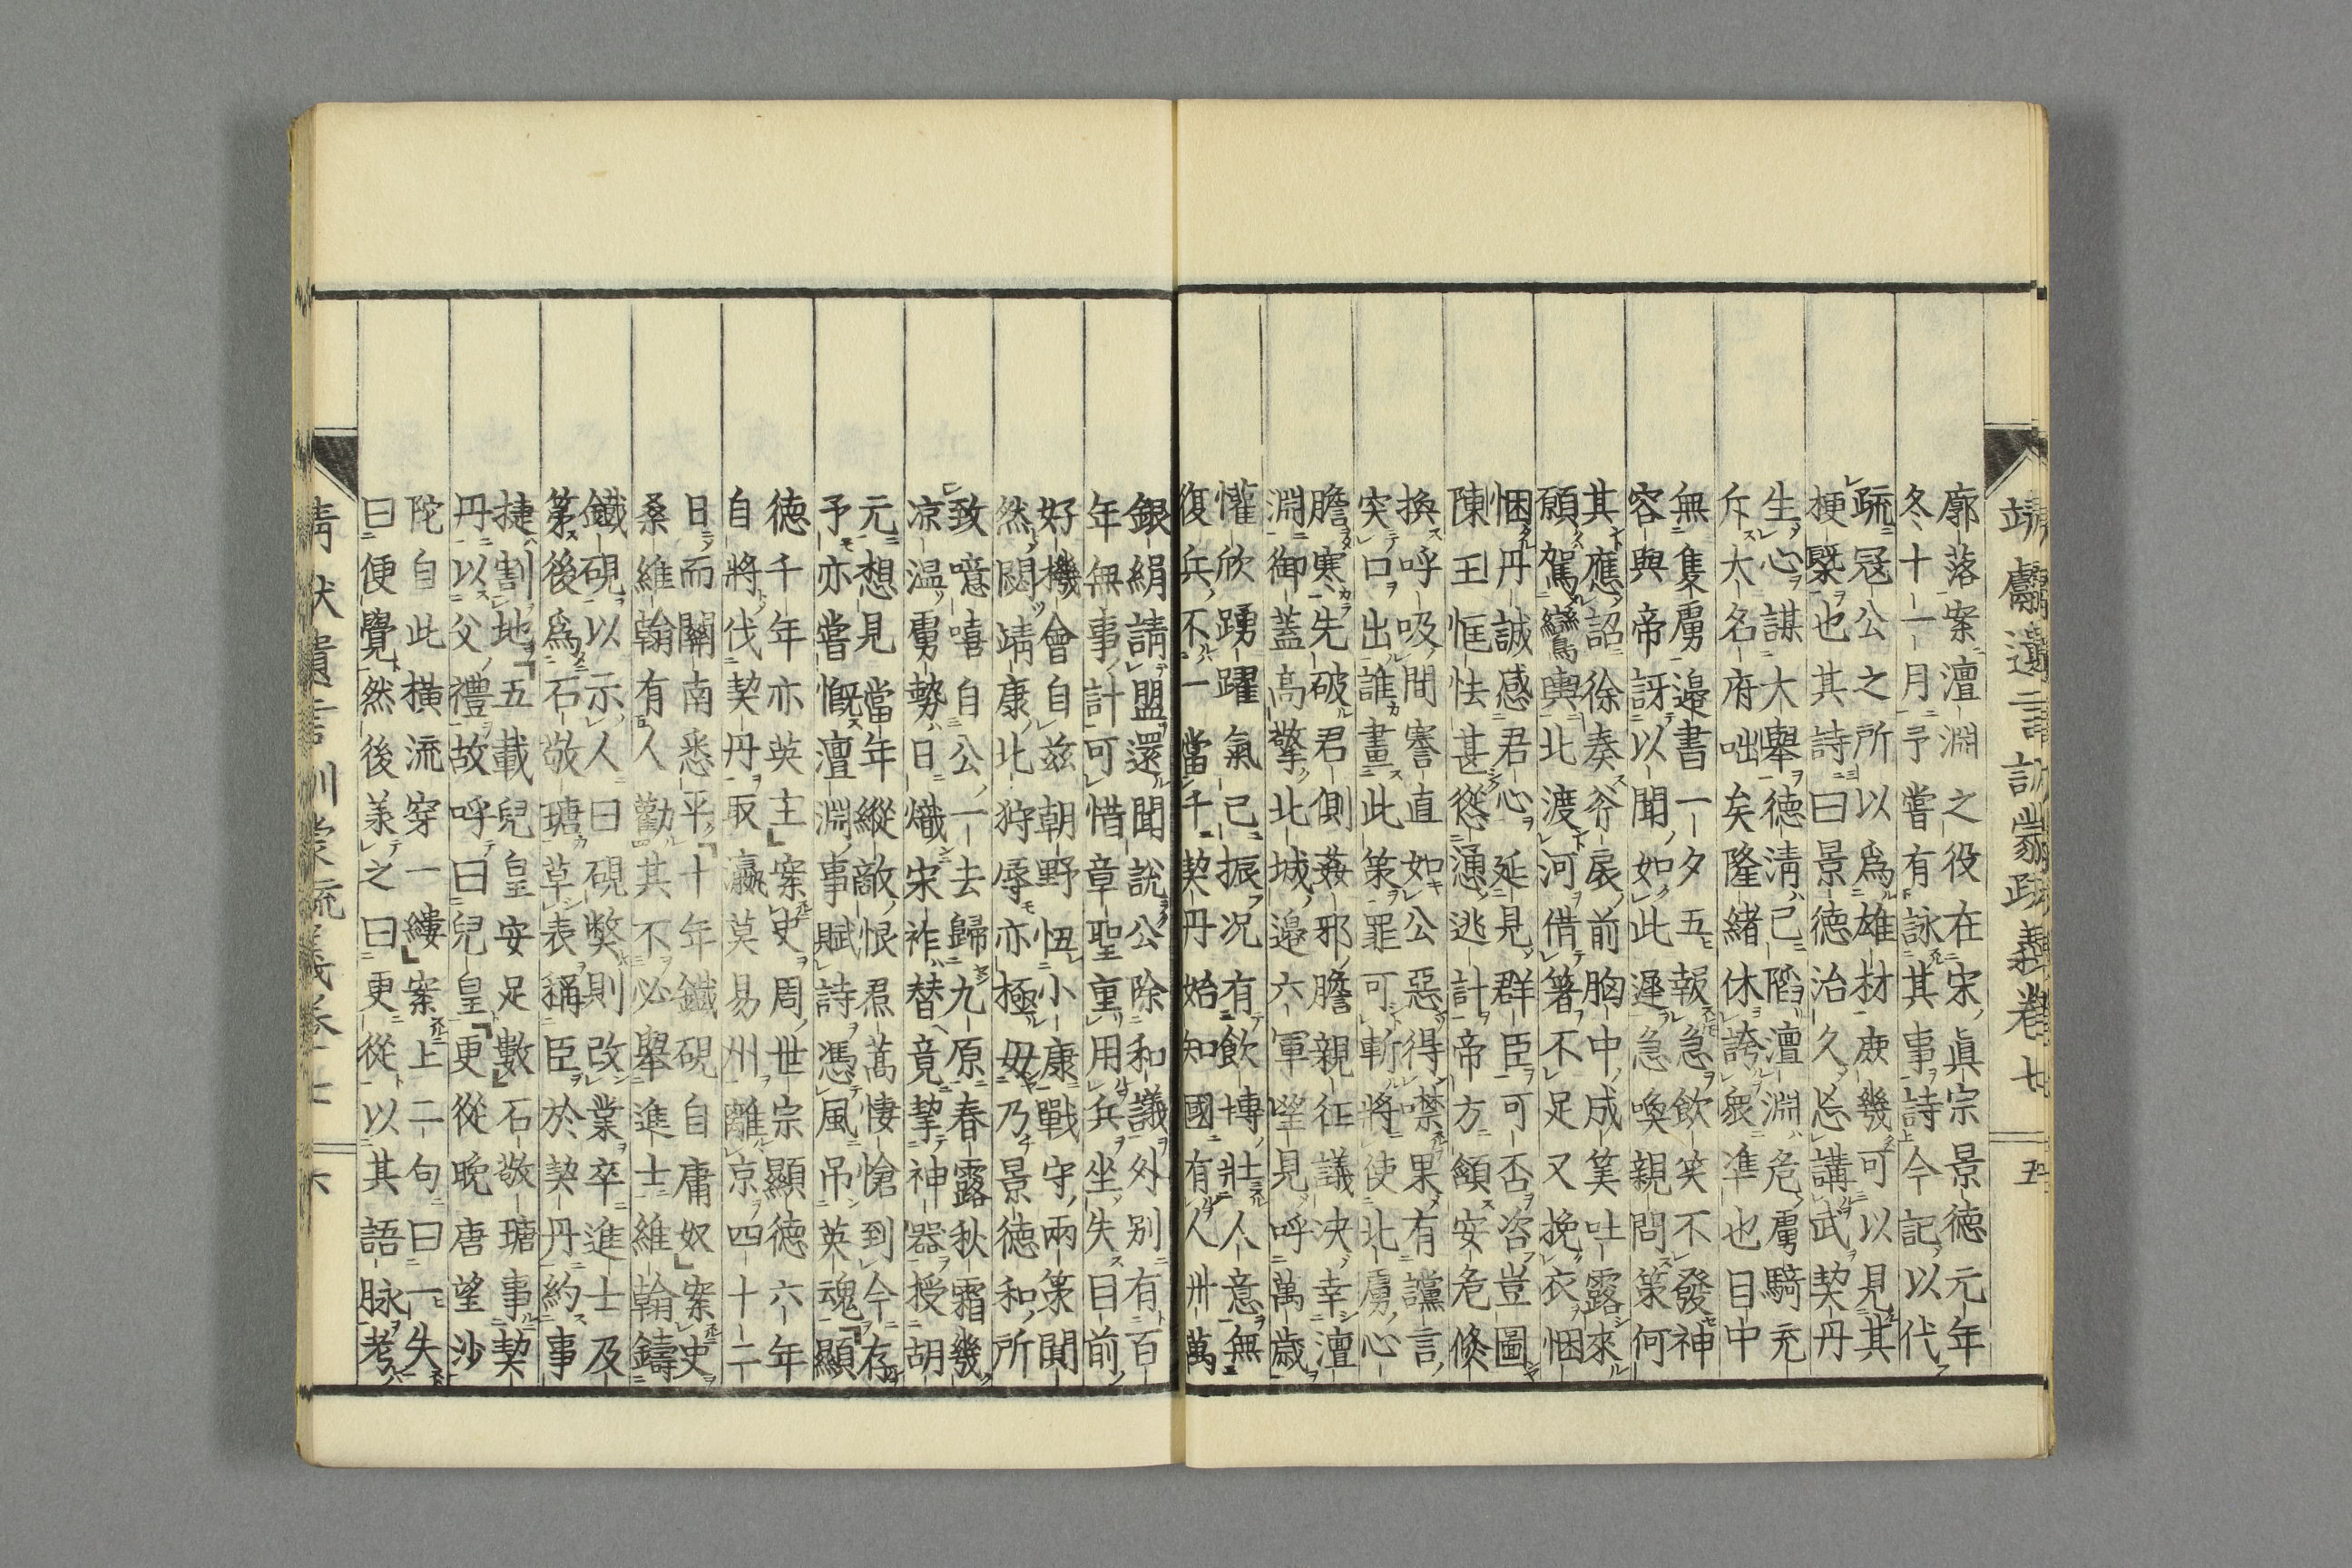 靖獻遺言訓蒙疏義卷七 五
廓落案澶淵之役在宋眞宗景德元年
冬十一月予嘗有詠其事詩今記以代
疏冦公之所以爲雄材庻幾可以見其
梗槩也其詩曰景德治久忘講武契丹
生心謀大舉德淸已陷澶淵危虜騎充
斥大名府咄矣隆緖休誇衆準也目中
無隻虜邉書一夕五報急飮笑不發神
容與帝訝以聞如此遲急喚親問策何
其應詔徐奏斧扆前胸中成筭吐露來
願駕鸞輿北渡河借箸不足又挽衣悃
悃丹誠感君心延見群臣可否咨豈圖
陳王恇怯甚慫慂逃計帝方頷安危倐
換呼吸間謇直如公惡得噤果有讜言
突口出誰畫此策罪可斬將使北虜心
膽寒先破君側姦邪膽親征議决幸澶
淵御蓋高擎北城邉六軍望見呼萬歳
懽欣踴躍氣已振况有飮博壯人意無
復兵不一當千契丹始知國有人卅萬
銀絹請盟還聞說公除和議外别有百
年無事計可惜章聖重用兵坐失目前
好機會自玆朝野忸小康戰守兩策闃
然闕靖康北狩辱亦極毋乃景德和所
致噫嘻自公一去歸九原春露秋霜幾
凉温虜勢日熾宋祚替竟挈神器授胡
元想見當年縱敵恨焄蒿悽愴到今存
予亦嘗慨澶淵事賦詩憑風吊英魂顯
德千年亦英主案史周世宗顯德六年
自將伐契丹取瀛莫易州離京四十二
日而關南悉平十年鐵硯自庸奴案史
桑維翰有人勸其不必舉進士維翰鑄
鐵硯以示人曰硯弊則改業卒進士及
第後爲石敬瑭草表稱臣於契丹約事
捷割地五載兒皇安足數石敬瑭事契
丹以父禮故呼曰兒皇更從晩唐望沙
陀自此橫流穿一縷案上二句曰一失
曰便覺然後羕之曰更從以其語脉考
靖獻遺言訓蒙疏義卷七 六